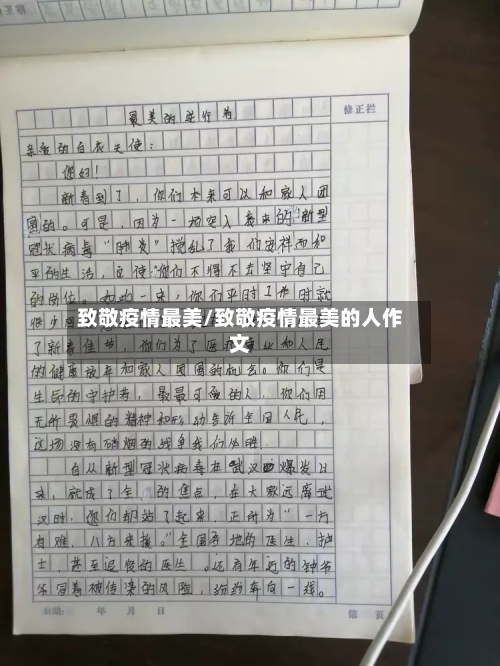 修正栏
最美的逆行者
亲爱的白衣天使：
您好！
新春到了，你们本来可以和家人团
圆的。可是，因为一场突入其来的"新型
冠状病毒"肺炎"搅乱了我们安祥而和
平的生活，也使你们不得不在坚守自己
的岗位。如此一来，你们平时工作时就
很少
致敬疫情最美/致敬疫情最美的人作
文
了新春佳节，你们为了医护事业和人民
的健康放弃和家人团圆的机会。你们是
生命的守护者，最最可爱的人，你们用
无所畏惧的精神和行动告诉全国人民，
这场没有硝烟的战争我们必胜
自从新型冠状病毒在武汉爆发以
来，就成了全的焦点，在大家远离武
汉时，您们却站了起来，正所为"一方
有难，八方来援。"全国各地的医生、护
士，甚至退休的医生。还有年近的钟爷
爷冒着被传染的风险，纷纷奔向一线。
年 月 日
第 页